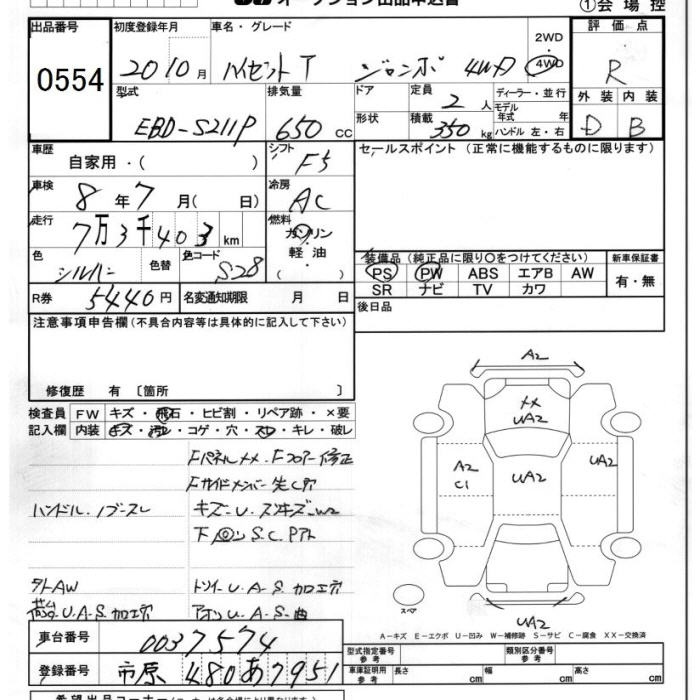 オークション出品申込書 ①会場控
出品番号 初度登録年月 車名・グレード 2WD 評価点
0554 2010月 ハイゼットT ジャンボ 4WD 4WD R
型式 排気量 ドア 定員 2人 ディーラー・並行 外装 内装
EBD-S211P 650cc 形状 積載 350kg モデル年式 年 D B
ハンドル 左・右
車歴 自家用・( ) シフト F5 セールスポイント (正常に機能するものに限ります)
車検 8年7月( 日) 冷房 AC
走行 7万3千403km 燃料 ガソリン
軽油
色 シルバー 色替 色コード S28 装備品 (純正品に限り○をつけてください) 新車保証書
PS PW ABS エアB AW 有・無
SR ナビ TV カワ
R券 5440円 名変通知期限 月 日 後日品
注意事項申告欄(不具合内容等は具体的に記入して下さい)
修復歴 有〔箇所 〕
検査員 FW キズ・飛石・ヒビ割・リペア跡・×要
記入欄 内装 キズ・汚レ・コゲ・穴・スレ・キレ・破レ
FパネルXX.Fフロアー修正
Fサイドメンバー先C穴
ハンドル.ノブースレ キズーU.スリキズーW2
下◎ン S.C.Pアト
タトAW U.A-S.加工穴
U.A-S.加工穴 アオリU.A-S.曲
A2
XX
UA2
A2
C1
UA2
UA2
スペア
UA2
A-キズ E-エクボ U-凹み W-補修跡 S-サビ C-腐食 XX-交換済
車台番号 0037574 型式指定番号 参考 類別区分番号 参考
登録番号 市原480あ7951 車庫証明用 参考 長さ cm 幅 cm 高さ cm